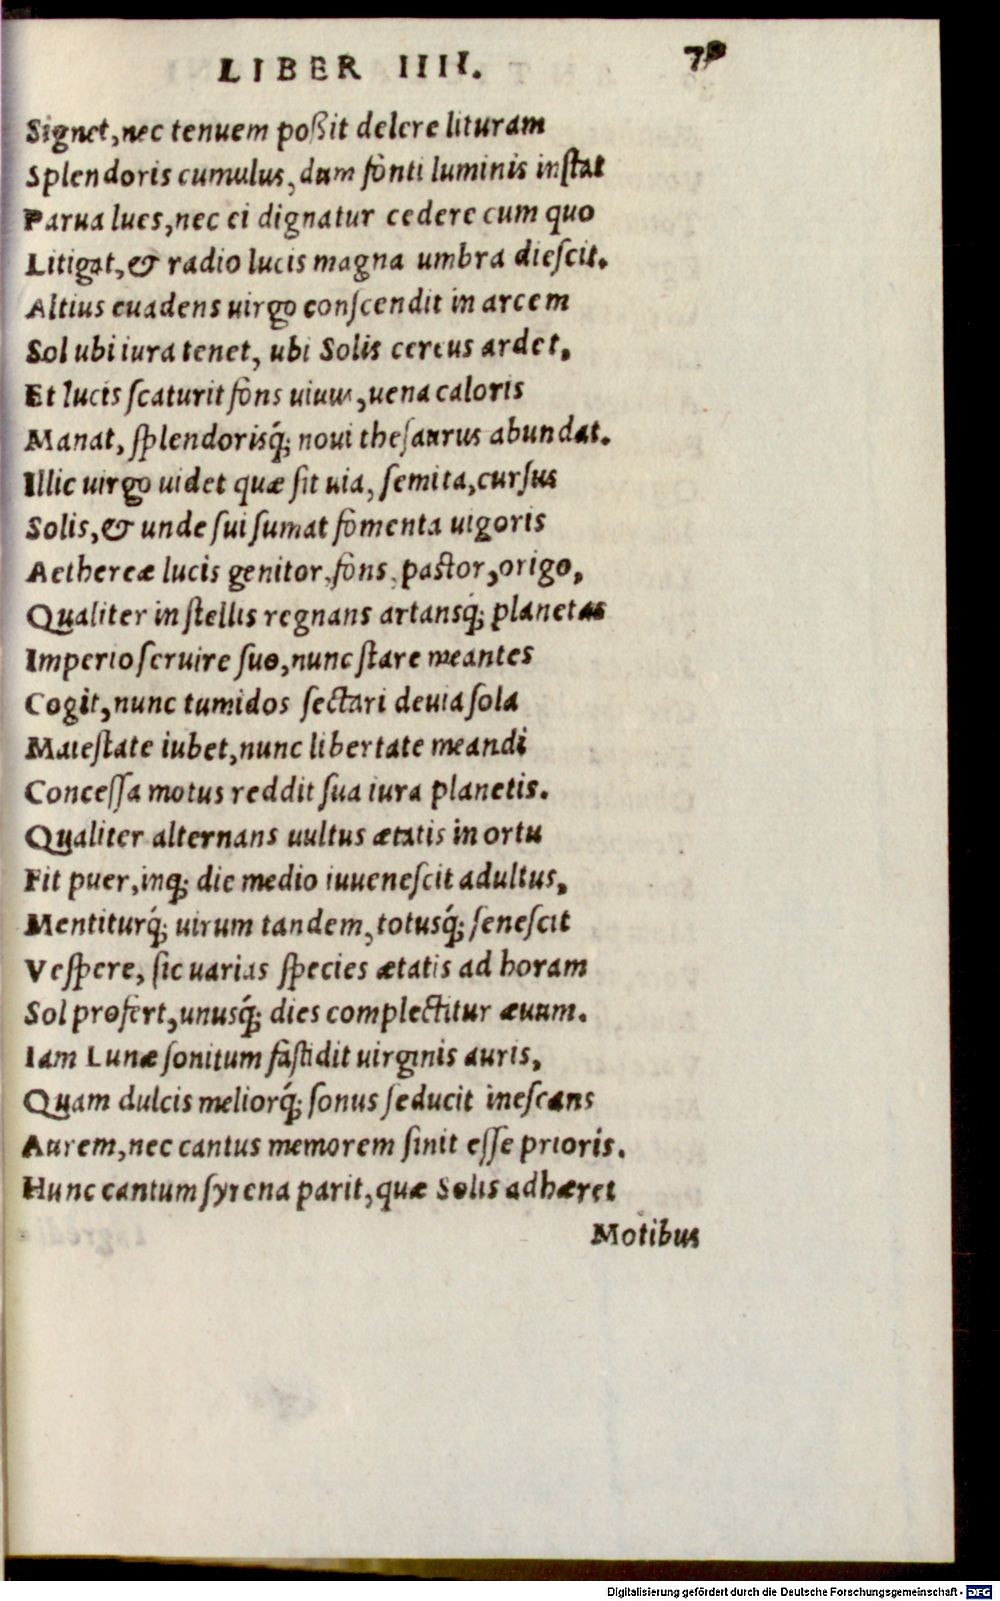 LIBER IIII.
Signet, nec tenuem poßit delere lituram
Splendoris cumulus, dum fonti luminis instat
Parua lues, nec ei dignatur cedere cum quo
Litigat, & radio lucis magna umbra diescit.
Altius euadens uirgo conscendit in arcem
Sol ubi iura tenet, ubi Solis cereus ardet,
Et lucis scaturit fons uiuus, uena caloris
Manat, splendorisq́; noui thesaurus abundat.
Illic uirgo uidet quæ sit uia, semita, cursus
Solis, & unde sui sumat fomenta uigoris
Aethereæ lucis genitor, fons, pastor, origo,
Qualiter in stellis regnans artansq́; planetas
Imperio seruire suo, nunc stare meantes
Cogit, nunc tumidos sectari deuia sola
Maiestate iubet, nunc libertate meandi
Concessa motus reddit sua iura planetis.
Qualiter alternans uultus ætatis in ortu
Fit puer, inq; die medio iuuenescit adultus,
Mentiturq́; uirum tandem, totusq́; senescit
Vespere, sic uarias species ætatis ad horam
Sol profert, unusq́; dies complectitur æuum.
Iam Lunæ sonitum fastidit uirginis auris,
Quam dulcis meliorq́; sonus seducit inescans
Aurem, nec cantus memorem sinit esse prioris.
Hunc cantum syrena parit, quæ Solis adhæret
Motibus
Digitalisierung gefördert durch die Deutsche Forschungsgemeinschaft - DFG